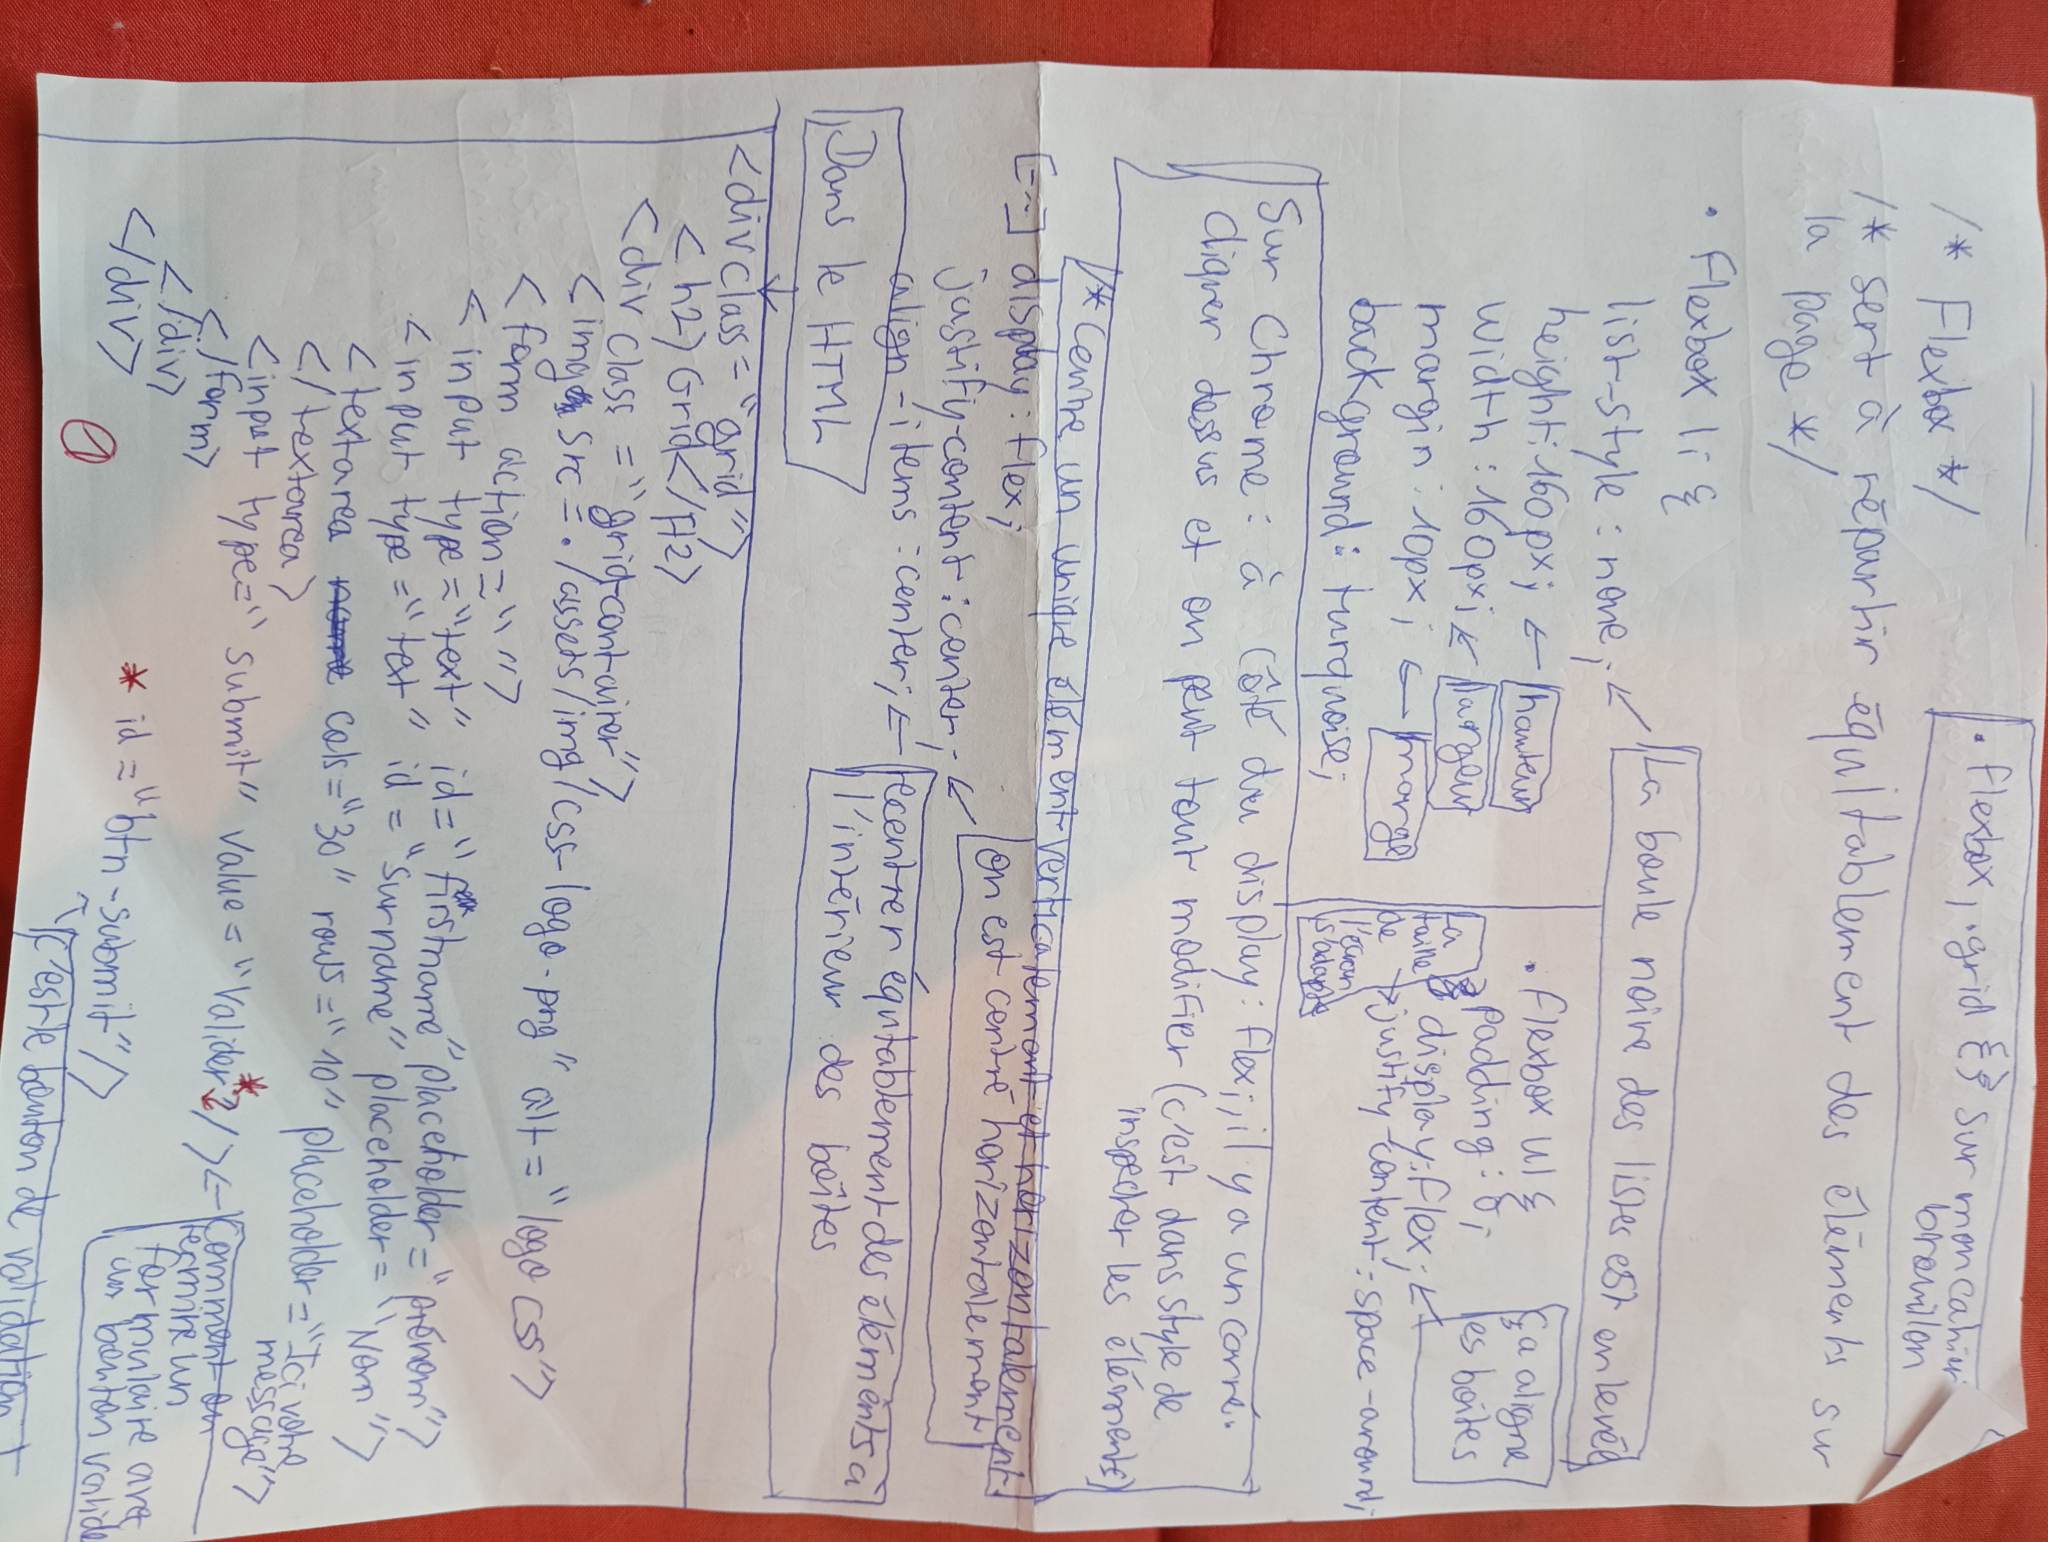 • Flexbox, grid {} sur mon cahier
brouillon
/* Flexbox */
/* sert à répartir équitablement des éléments sur
la page */
• Flexbox li {
list-style : none; ← La boule noire des listes est enlevée
height: 160px; ← hauteur
width : 160px; ← largeur
margin : 10px; ← marge
background : turquoise;
• flexbox ul {
padding : 0;
display: flex; ← ça aligne
les boîtes
justify-content : space-around;
La
taille
de
l'écran
s'adapte
Sur Chrome : à côté du display: flex; , il y a un carré.
Cliquer dessus et on peut tout modifier (c'est dans style de
inspecter les éléments)
/* Centre un unique élément verticalement et horizontalement.
[...] display: flex;
justify-content : center; ← on est centré horizontalement
align-items : center; ← recentrer équitablement des éléments à
l'intérieur des boîtes
Dans le HTML
<div class = "grid">
<h2> Grid </h2>
<div class = "grid-container">
<img src = "./assets/img/css-logo.png" alt = "logo css">
<form action = "">
<input type = "text" id = "firstname" placeholder = "prénom">
<input type = "text" id = "surname" placeholder = "Nom">
<textarea cols = "30" rows = "10" placeholder = "Ici votre
message">
</textarea>
<input type = "submit" value = "Valider" * 2/> ← Comment on
termine un
formulaire avec
un bouton valide
</form>
</div>
</div>
* id = "btn-submit"/>
C'est le bouton de validation
①